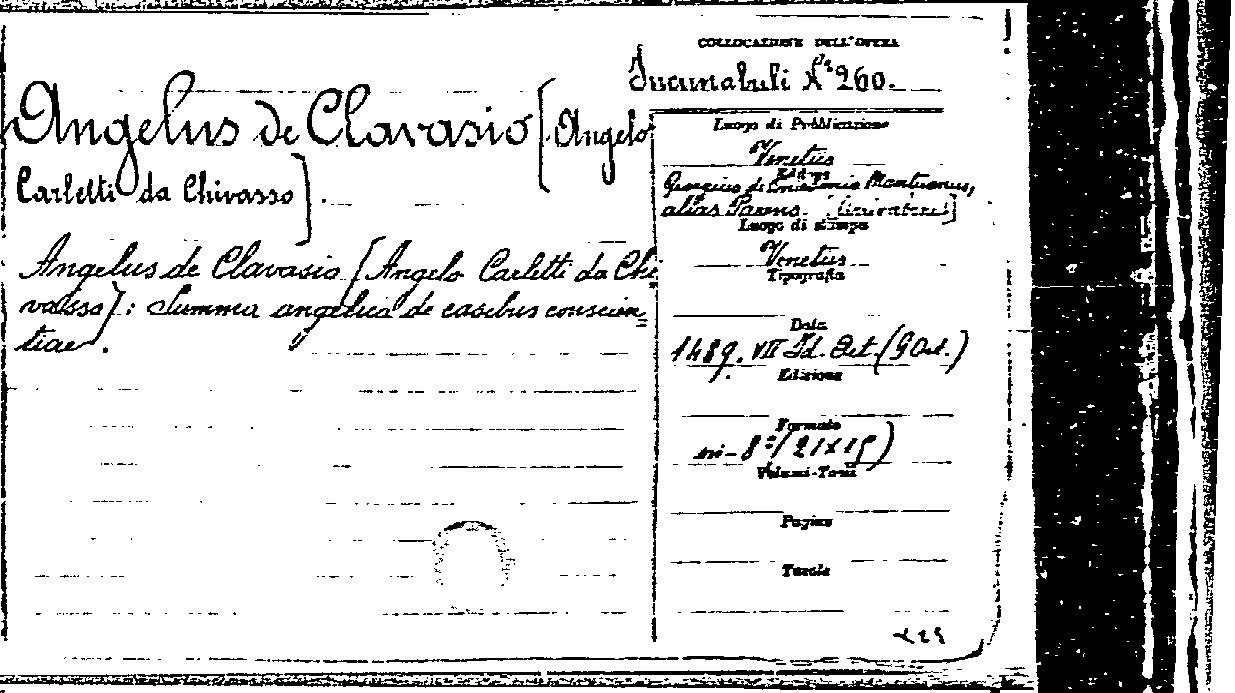 COLLOCAZIONE DELL'OPERA
Incunabuli N.º 260.
Angelus de Clavasio [Angelo
Carletti da Chivasso].
Angelus de Clavasio [Angelo Carletti da Chi
vasso]: Summa angelica de casibus conscien=
tiae.
Luogo di Pubblicazione
Venetiis
Editore
Georgius de Mantuanus,
alias Parens.
Luogo di stampa
Venetiis
Tipografia
Data
1489. VII Id. Oct. (9 Oct.)
Edizione
Formato
in-8º (21x15)
Volumi-Tomi
Pagine
Tavole